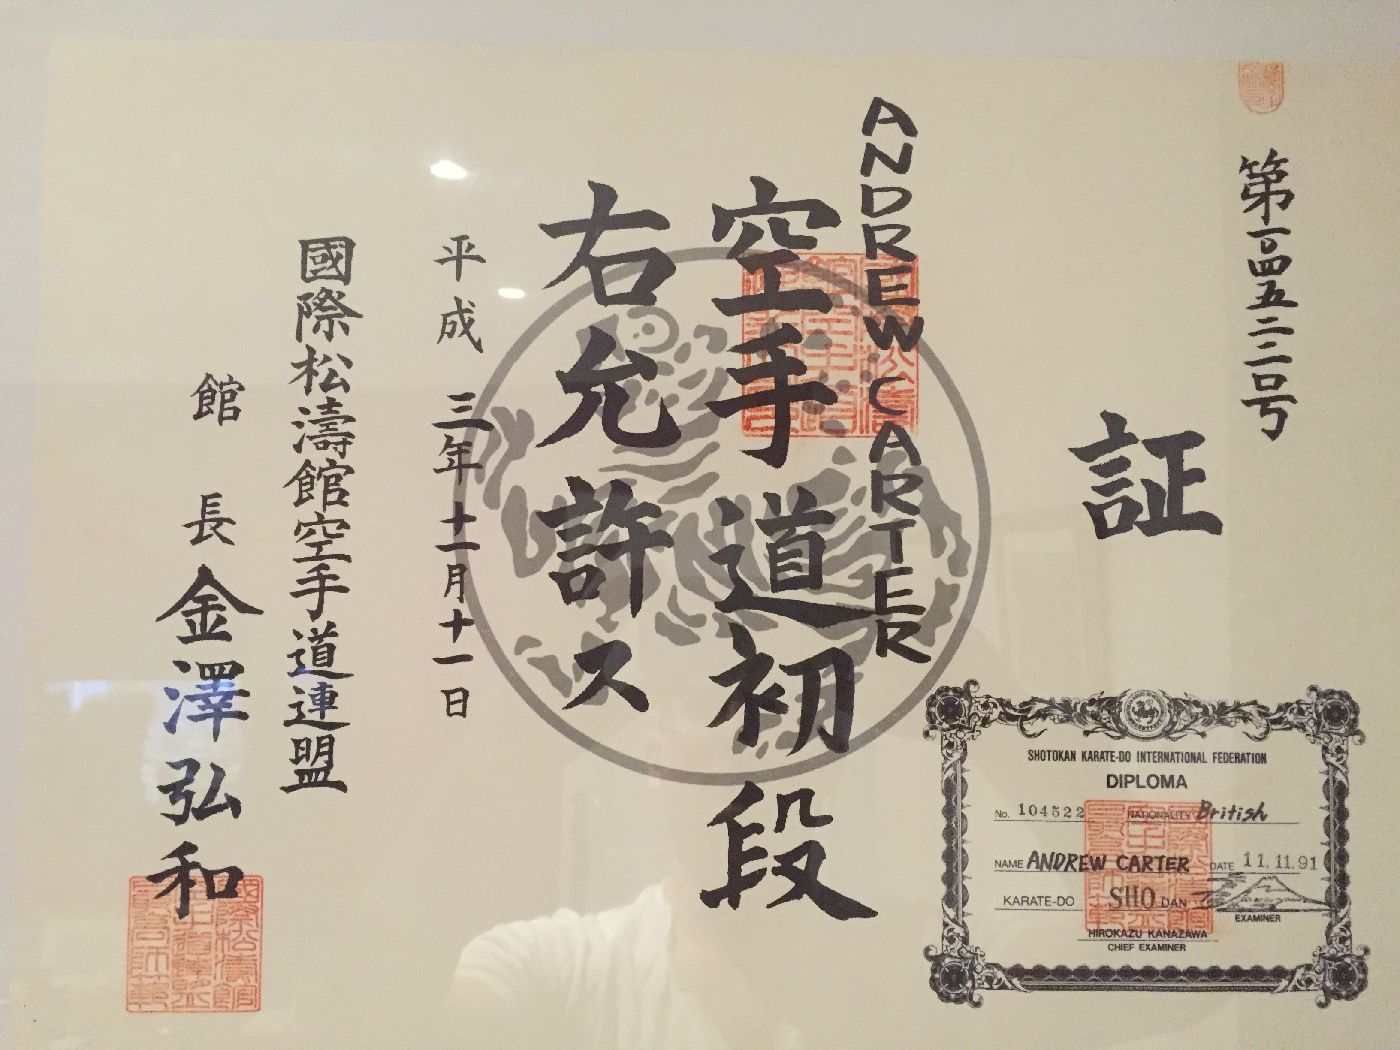 第一〇四五二二号
証
ANDREW CARTER
空手道初段
右允許ス
平成三年十一月十一日
國際松濤館空手道連盟
館長 金澤弘和
SHOTOKAN KARATE-DO INTERNATIONAL FEDERATION
DIPLOMA
No. 104522 NATIONALITY British
NAME ANDREW CARTER DATE 11.11.91
KARATE-DO SHO DAN
EXAMINER
HIROKAZU KANAZAWA
CHIEF EXAMINER